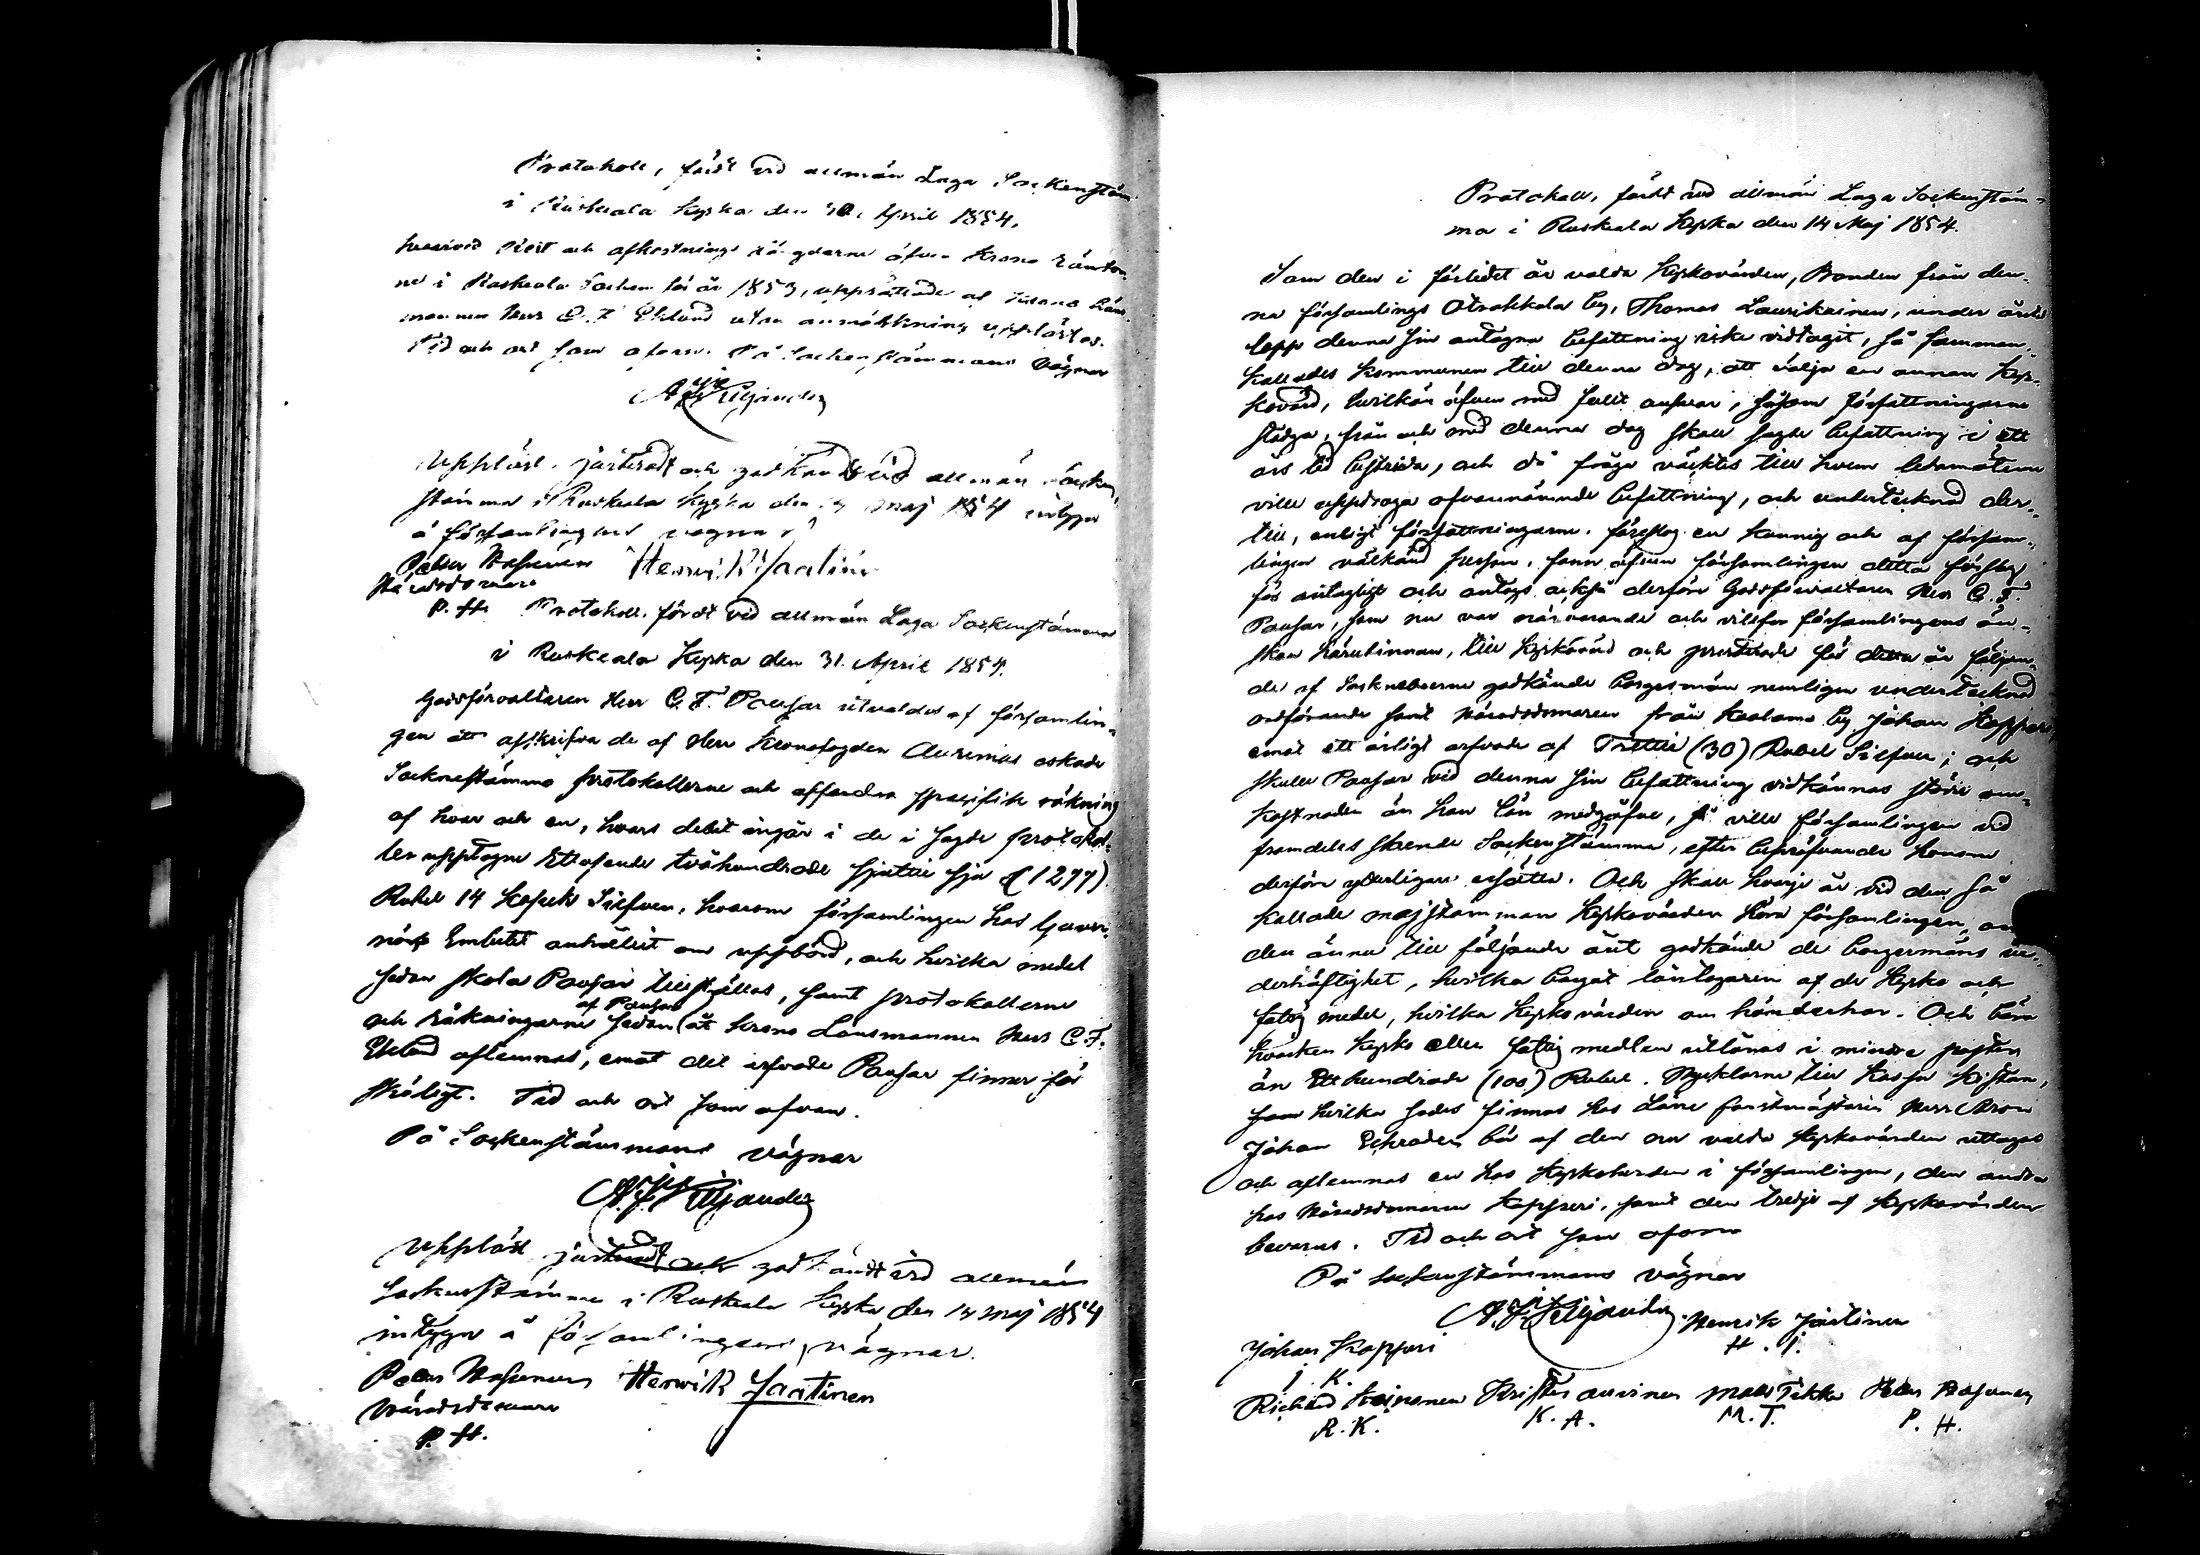 Protokoll, fördt vid allmän Laga Sockenstäm
i Ruskeala Kyrka den 30. April 1854.
hvarvid Rest och afkortnings längderne öfver Krono Räntor
ne i Ruskeala Socken för år 1853, upprättade af Krono Läns
mannen Herr C. F. Eklund utan anmärkning upplästes.
Tid och ort som ofvan. På Sockenstämmans vägnar
Uppläst, justeradt och godkändt vid allmän Socken
stämma i Ruskeala Kyrka den 14 Maj 1854 intyga
å församlingens vägnar
Häradsdomare Henrik Jaatinen
P. H. Protokoll, fördt vid allmän Laga Sockenstämma
i Ruskeala Kyrka den 31. April 1854.
Godsförvaltaren Herr C. F. Pousar utvaldes af församlin-
gen att afskrifva de af Herr Kronofogden äskade
Sockenstämmo protokollerne och affordra specifik räkning
af hvar och en, hvars debet ingår i de i sagde protokol-
ler upptagne Ettusende tvåhundrade sjuttio sju (1277)
Rubel 14 Kopek Silfver, hvarom församlingen hos Guver-
nörs Embetet anhållit om uppbörd, och hvilka medel
sedan skola Pousar tillställas, samt protokollerne
och räkningarne af Pousar sedan åt Krono Länsmannen Herr C. F.
Eklund aflemnas, emot det arfvode Pousar finner för
skäligt. Tid och ort som ofvan.
På Sockenstämmans vägnar
Uppläst justeradt och godkändt vid allmän
Sockenstämma i Ruskeala Kyrka den 14 Maj 1854
intyga å församlingens vägnar.
Henrik Jaatinen
Häradsdomare
P. H.
Protokoll, fördt vid allmän Laga Sockenstäm-
ma i Ruskeala Kyrka den 14 Maj 1854.
Som den i förledet år valda Kyrkovärden, Bonden från den-
na församlings Otrakkala by, Thomas Laurikainen, under årets
lopp denna sin antagna befattning icke vidtagit, så samman-
kallades kommunen till denna dag, att välja en annan Kyr-
kovärd, hvilken äfven med fullt ansvar, såsom författningarne
stadga, från och med denna dag skall sagde befattning i ett
års tid bestrida, och då fråga väcktes till hvem ledamöterne
ville uppdraga ofvannämnde befattning, och undertecknad der-
till, enligt författningarne, föreslog en kunnig och af försam-
lingen välkänd person, fann äfven församlingen detta förslag
för antagligt och antogs också derföre Godsförvaltaren Herr C. F.
Pousar, som nu var närvarande och villfor församlingens ön-
skan härutinnan, till Kyrkovärd och presterade för detta år följan-
de af Sockneboerne godkände borgesmän nemligen undertecknad
ordförande samt Häradsdomaren från Kaalamo by Johan Kapperi
emot ett årligt arfvode af Trettio (30) Rubel Silfver; och
skulle Pousar vid denna sin befattning vidkännas större om-
kostnader än hans lön medgåfve, så ville församlingen vid
framdeles skeende Sockenstämma, efter bepröfvande honom
derföre ytterligare ersätta. Och skall hvarje år vid den så
kallade majstämman Kyrkovärden höra församlingen, om
den ännu till följande året godkände de borgesmäns ve-
derhäftighet, hvilka borgat låntagaren af de Kyrko och
fattig medel, hvilka Kyrkovärden om händerhar. Och böra
hvarken Kyrko eller fattig medlen utlånas i mindre poster
än Etthundrade (100) Rubel. Nycklarne till Kassa Kistan,
som hvilka sades finnas hos Läns forstmästaren Herr Aron
Johan Schroder bör af den nu valda Kyrkovärden uttagas
och aflemnas en hos Kyrkoherden i församlingen, den andra
hos Häradsdomaren Kapperi, samt den tredje af Kyrkovärden
bevaras. Tid och ort som ofvan
På Sockenstämmans vägnar
Henrik Jaatinen
Johan Kapperi H. J.
J. K.
R. K. K. A. M. T. P. H.